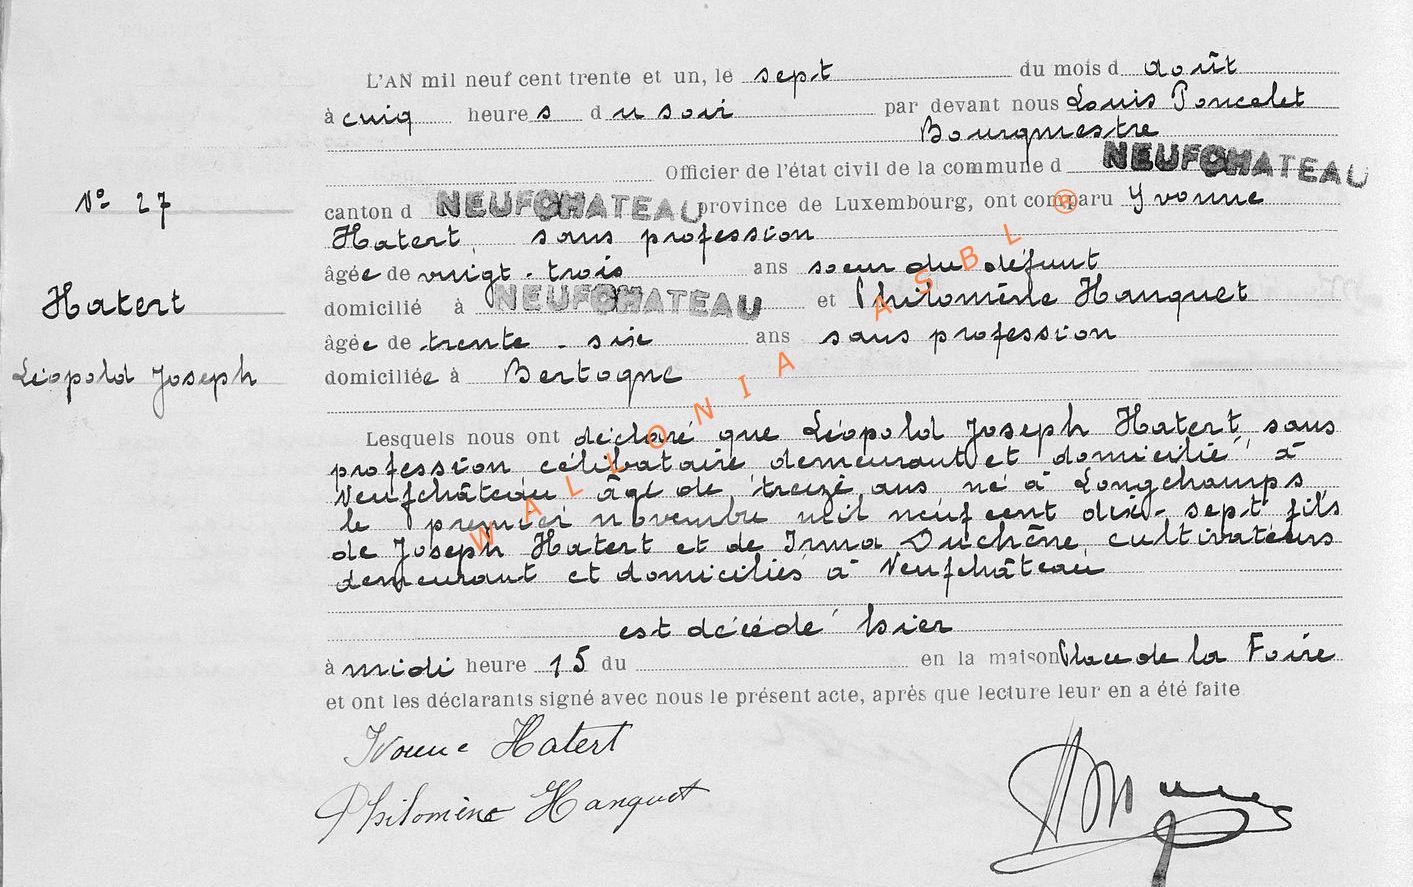 L'AN mil neuf cent trente et un, le sept du mois d août
à cinq heures du soir par devant nous Louis Poncelet
Bourgmestre
Officier de l'état civil de la commune d NEUFCHATEAU
N° 27
canton d NEUFCHATEAU province de Luxembourg, ont comparu Yvonne
Hatert, sans profession
âgée de vingt-trois ans soeur du défunt
Hatert
domicilié à NEUFCHATEAU et Philomène Hanquet
âgée de trente-six ans sans profession
Léopold Joseph
domiciliée à Bertogne
Lesquels nous ont déclaré que Léopold Joseph Hatert, sans
profession célibataire demeurant et domicilié à
Neufchâteau âgé de treize ans né à Longchamps,
le premier novembre mil neuf cent dix-sept fils
de Joseph Hatert et de Irma Duchêne, cultivateurs
demeurant et domiciliés à Neufchâteau
est décédé hier
à midi heure 15 du en la maison Place de la Foire
et ont les déclarants signé avec nous le présent acte, après que lecture leur en a été faite
Yvonne Hatert
Philomène Hanquet
WALLONIA ASBL ®